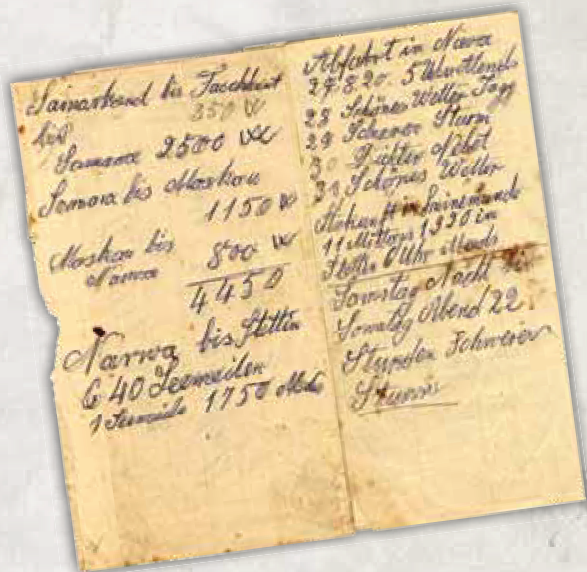 Samarkand bis Taschkent
350 W
bis
Samara 2500 W
Samara bis Moskau
1150 W
Moskau bis
Narwa 800 W
4450
Narwa bis Stettin
640 Seemeilen
1 Seemeile 1750 Met
Abfahrt in Narva
27.8.20. 5 Uhr
28 Schönes Wetter
29 Schwerer Sturm
30 Dichter Nebel
31 Schönes Wetter
Ankunft in Swinemünde
11 Mittags 1330 in
Stettin 6 Uhr Abends
Sonntag Nacht bis
Sonntag Abend 22
Stunden Schwerer
Sturm